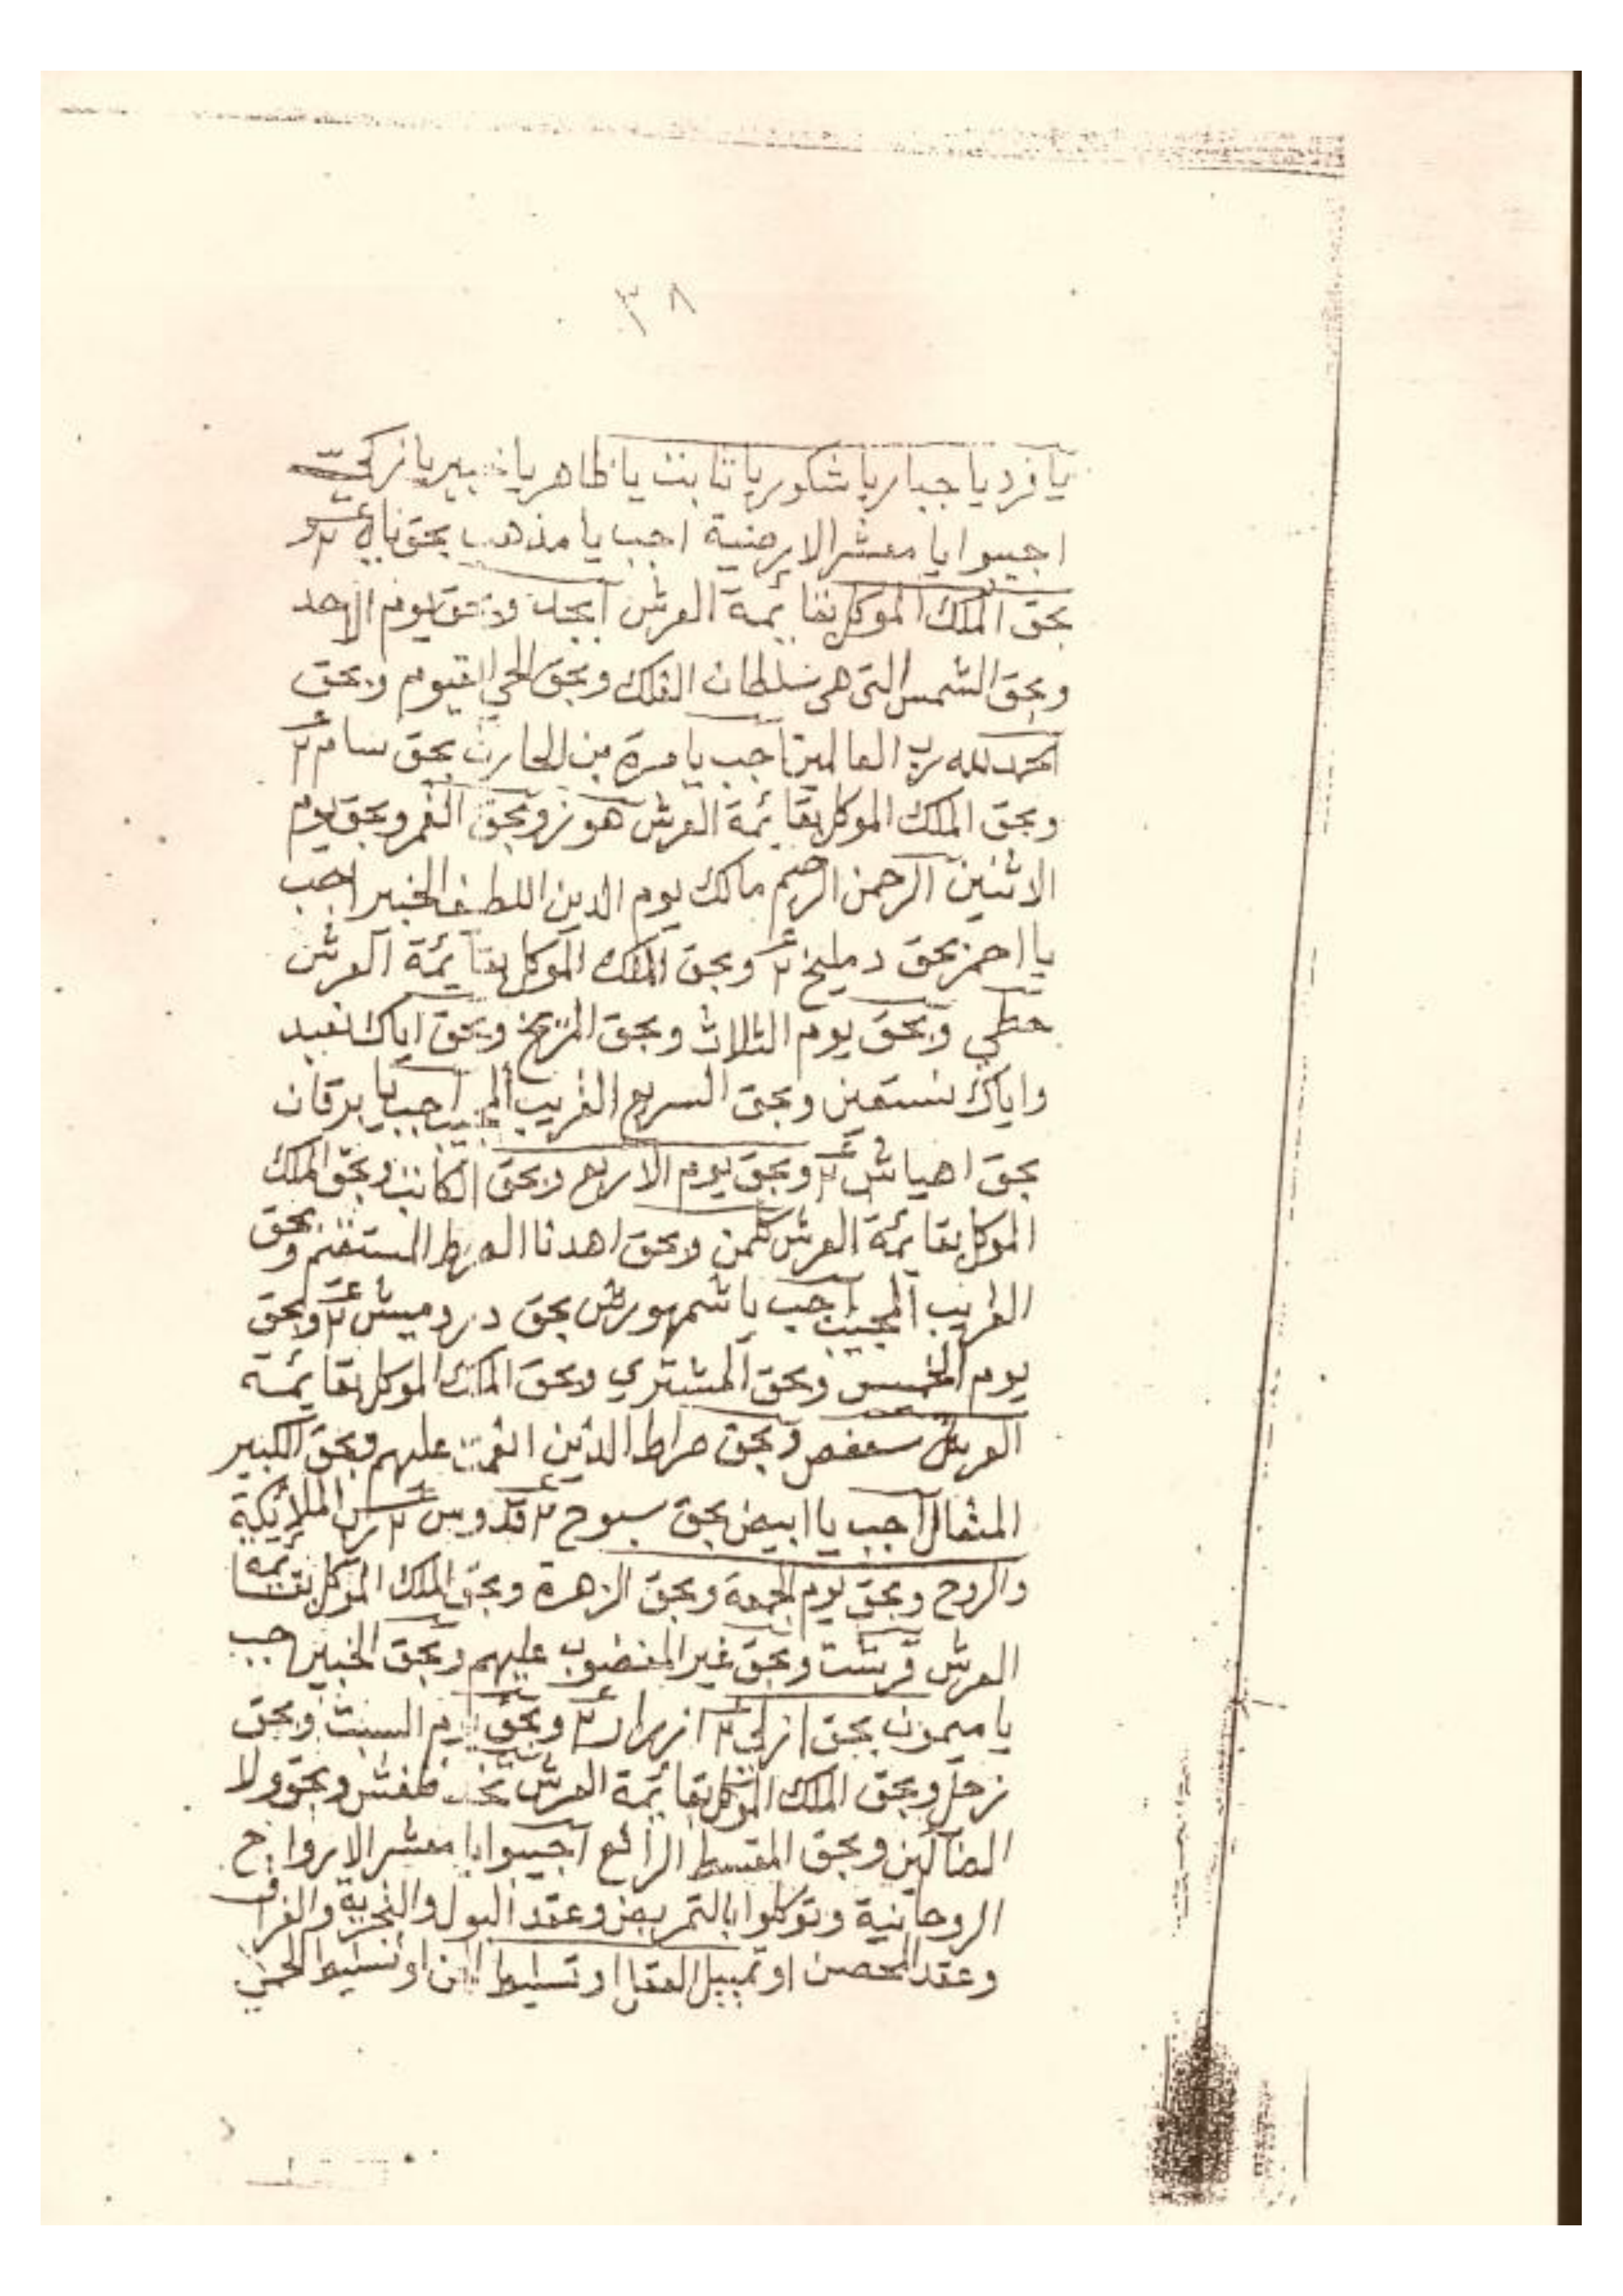 ٣٨
يا فرد يا جبار يا شكور يا ثابت يا ظاهر يا خبير يا زكي
اجيبوا يا معشر الارضية اجب يا مذهب بحق
بحق الملك الموكل بقائمة العرش ابجد وبحق يوم الاحد
وبحق الشمس التى هى سلطان الفلك وبحق الحي القيوم وبحق
الحمد لله رب العالمين اجب يا مرة بن الحارث بحق سام ٢
وبحق الملك الموكل بقائمة العرش هوز وبحق القمر وبحق يوم
الاثنين الرحمن الرحيم مالك يوم الدين اللطيف الخبير اجب
يا احمر بحق دمليخ ٢ وبحق الملك الموكل بقائمة العرش
حطي وبحق يوم الثلاث وبحق المريخ وبحق اياك نعبد
واياك نستعين وبحق السريع القريب المجيب اجب يا برقان
بحق اهياش ٢ وبحق يوم الاربع وبحق الكاتب وبحق الملك
الموكل بقائمة العرش كلمن وبحق اهدنا الصرط المستقيم وبحق
القريب المجيب اجب يا شمهورش بحق دردميش ٢ وبحق
يوم الخميس وبحق المشتري وبحق الملك الموكل بقائمة
العرش سعفص وبحق صراط الذين انعمت عليهم وبحق الكبير
المتعال اجب يا ابيض بحق سبوح ٢ قدوس ٢ رب الملائكة
والروح وبحق يوم الجمعة وبحق الزهرة وبحق الملك الموكل بقائمة
العرش قرشت وبحق غير المغضوب عليهم وبحق الخبير اجب
يا ميمون بحق ازلي ٢ ٢ وبحق يوم السبت وبحق
زحل وبحق الملك الموكل بقائمة العرش وبحق ولا
الضالين وبحق المقسط الرافع اجيبوا يا معشر الارواح
الروحانية وتوكلوا بالتمريض وعقد البول والفراق
وعقد المحصن او العقل او تسليط او تسليط الحمى